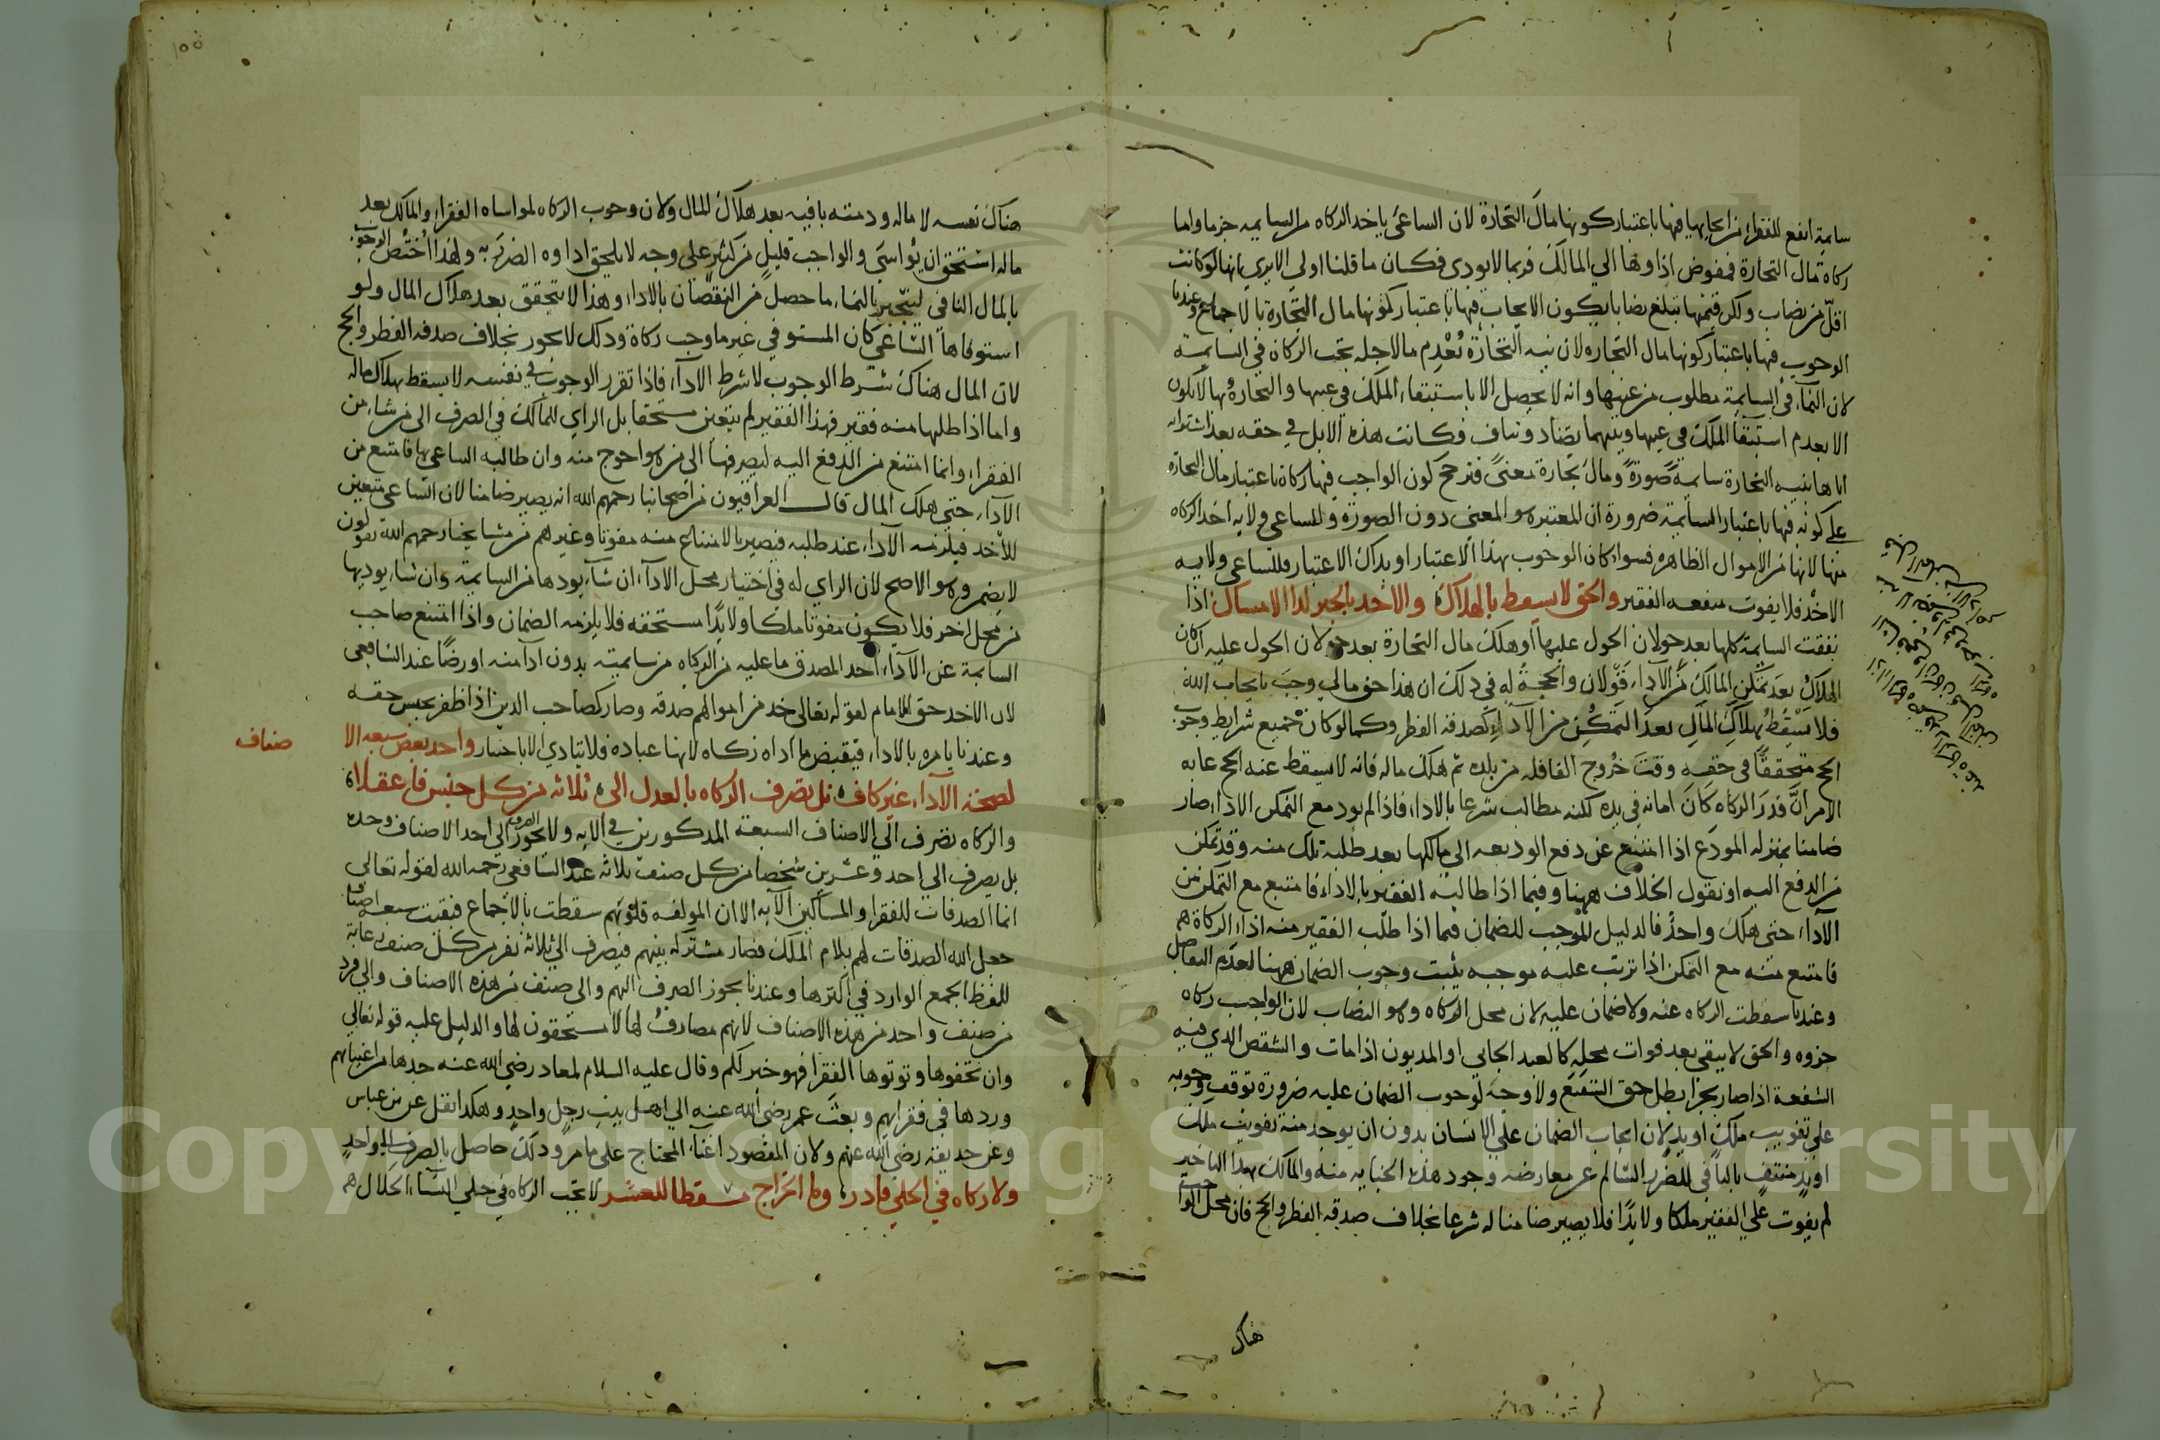 سايمة انفع للفقراء من ايجابها فيها باعتبار كونها مال التجارة لان الساعي ياخد الزكاه من السايمه جزما واما
زكاة مال التجارة فمفوض اداوها الي المالك فربما لا يودى فكان ما قلنا اولي الا يري انها لو كانت
اقل من نصاب ولكن قيمتها تبلغ نصابا يكون الايجاب فيها باعتبار كونها مال التجارة بالاجماع وعندنا
الوجوب فيها باعتبار كونها مال التجاره لان نيه التجارة تعدم ما لاجله تجب الزكاة في السايمة
لان النماء في السايمة مطلوب من عينها وانه لا يحصل الا باستبقاء الملك في عينها والتجارة بها لا تكون
الا بعدم استبقا الملك في عينها وبينهما تضاد وتناف فكانت هذه الابل في حقه بعد اشترايه
اياها بنيه التجارة سايمة صورة ومال تجارة معنى فترجح كون الواجب فيها زكاة باعتبار مال التجارة
على كونه فيها باعتبار السايمة ضرورة ان المعتبر هو المعنى دون الصورة وللساعي ولاية اخذ الزكاه
منها لانها من الاموال الظاهره فسواء كان الوجوب بهذا الاعتبار او بذاك الاعتبار فللساعي ولاية
الاخذ فلا يفوت منفعه الفقير والحق لا يسقط بالهلاك والاخذ بالجبر لذا الامساك اذا
نفقت السايمة كلها بعد حولان الحول عليها او هلك مال التجارة بعد حولان الحول عليه ان كان
الهلاك بعد تمكن المالك من الاداء قولان والحجة له في ذلك ان هذا حق مالي وجب بايجاب الله
فلا يسقط بهلاك المال بعد التمكن من الاداء كصدقه الفطر وكما لو كان جميع شرايط وجوب
الحج متحققا في حقه وقت خروج القافله من بلده ثم هلك ماله فانه لا يسقط عنه الحج غايه
الامر ان قدر الزكاة كان امانه في يده لكنه مطالب شرعا بالاداء فاذا لم يود مع التمكن الاداء صار
ضامنا بمنزله المودع اذا امتنع عن دفع الوديعه الى مالكها بعد طلبه تلك منه وقد تمكن
من الدفع اليه او نقول الخلاف ههنا وفيما اذا طالبه الفقير بالاداء فامتنع مع التمكن من
الاداء حتى هلك واحد فالدليل الموجب للضمان فيما اذا طلب الفقير منه اداء الزكاة
فامتنع منه مع التمكن اذا ترتب عليه موجبه يثبت وجوب الضمان ههنا لعدم الفاصل
وعندنا سقطت الزكاه عنه ولا ضمان عليه لان محل الزكاه وهو النصاب لان الواجب زكاه
جزوه والحق لا يبقى بعد فوات محله كالعبد الجاني او المديون اذا مات والشقص الذي فيه
الشفعة اذا صار بحرا بطل حق الشفيع ولا وجه لوجوب الضمان عليه ضرورة توقف وجوبه
على تفويت ملك او يد لان ايجاب الضمان علي الانسان بدون ان يوجد منه تفويت ملك
او يد منتف بالنافي للضرر السالم عن معارضه وجود هذه الجنايه منه والمالك بهذا التاخير
لم يفوت علي الفقير ملكا ولا يدا فلا يصير ضامنا له شرعا بخلاف صدقه الفطر والحج فان محل الواجب
هناك
هناك نفسه لا ماله وذمته باقيه بعد هلاك المال ولان وجوب الزكاه لمواساه الفقراء والمالك بعد
ماله استحق ان يواسى والواجب قليل من كثير على وجه لا يلحق اداوه الضرر به ولهذا اختص الوجوب
بالمال النافي لينجبر بالنماء ما حصل من النقصان بالاداء وهذا لا يتحقق بعد هلاك المال ولو
استوفاها الساعي كان المستوفي غير ما وجب زكاة وذلك لا يجوز بخلاف صدقه الفطر والحج
لان المال هناك شرط الوجوب لا شرط الاداء فاذا تقرر الوجوب في نفسه لا يسقط بهلاك ماله
واما اذا طلبها منه فقير فهذا الفقير لم يتعين مستحقا بل الراي للمالك في الصرف الى من شاء من
الفقراء وانما امتنع من الدفع اليه ليصرفها الى من هو احوج منه وان طالبه الساعي بها فامتنع من
الاداء حتى هلك المال قال العراقيون من اصحابنا رحمهم الله انه يصير ضامنا لان الساعي متعين
للاخذ فيلزمه الاداء عند طلبه فيصير بالامتناع منه مفوتا وغيرهم من مشايخنا رحمهم الله يقولون
لا يضمن وهو الاصح لان الراي له في اختيار محل الاداء ان شاء يودها من السايمة وان شاء يوديها
من محل اخر فلا يكون مفوتا ملكا ولا يدا مستحقه فلا يلزمه الضمان واذا امتنع صاحب
السايمة عن الاداء اخذ المصدق ما عليه من الزكاه من سايمته بدون اداء منه او رضا عند الشافعي
لان الاخذ حق الامام لقوله تعالى خذ من اموالهم صدقه وصار كصاحب الدين اذا ظفر بجنس حقه
وعندنا يامره بالاداء فيقبض ما اداه زكاه لانها عباده فلا يتادي الا باختيار واحد بعض سبعه الا
صناف
لصحة الاداء غير كاف بل تصرف الزكاه بالعدل الى ثلاثه من كل جنس فاعقلا
والزكاه تصرف الي الاصناف السبعة المذكورين في الايه ولا يجوز الصرف الي احد الاصناف وحده
بل يصرف الي احد وعشرين شخصا من كل صنف ثلاثه عند الشافعي رحمه الله لقوله تعالي
انما الصدقات للفقراء والمساكين الايه الا ان المولفه قلوبهم سقطت بالاجماع فبقيت سبعه اصناف
جعل الله الصدقات لهم بلام الملك فصار مشتركه بينهم فيصرف الي ثلاثه نفر من كل صنف رعاية
للفظ الجمع الوارد في اكثرها وعندنا يجوز الصرف اليهم والى صنف من هذه الاصناف والي فرد
من صنف واحد من هذه الاصناف لانهم مصارف لها لا مستحقون لها والدليل عليه قوله تعالي
وان تخفوها وتوتوها الفقرا فهو خير لكم وقال عليه السلام لمعاد رضي الله عنه خذها من اغنيايهم
وردها في فقرايهم وبعث عمر رضي الله عنه الي اهل بيت رجل واحد وهكذا نقل عن بن عباس
وعن حذيفة رضي الله عنهم ولان المقصود اغناء المحتاج على ما مر وذلك حاصل بالصرف الي واحد
ولا زكاه في الحلي فادر وما الخراج مسقطا للعشر لا تجب الزكاه في حلي النساء الحلال